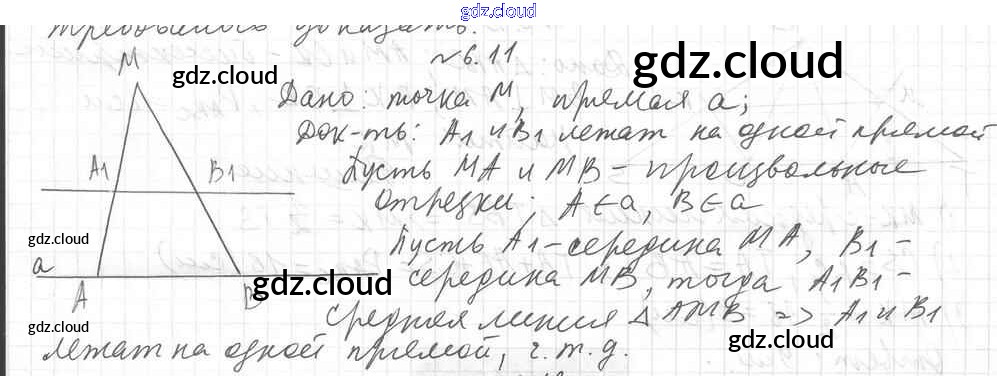 gdz.cloud
требовалось доказать.
№6.11
gdz.cloud
gdz.cloud
M
Дано: точка M, прямая a;
Док-ть: A1 и B1 лежат на одной прямой
A1 B1
Пусть MA и MB – произвольные
отрезки; A∈a, B∈a
gdz.cloud
Пусть A1-середина MA, B1-
a
середина MB, тогда A1B1-
A B
gdz.cloud
средняя линия △AMB => A1 и B1
gdz.cloud
лежат на одной прямой, ч.т.д.
gdz.cloud
gdz.cloud